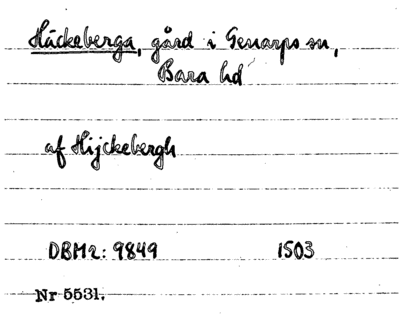 Häckeberga, gård i Genarps sn,
Bara hd
af Hijckebergh
DBM2: 9849 1503
Nr 5531.